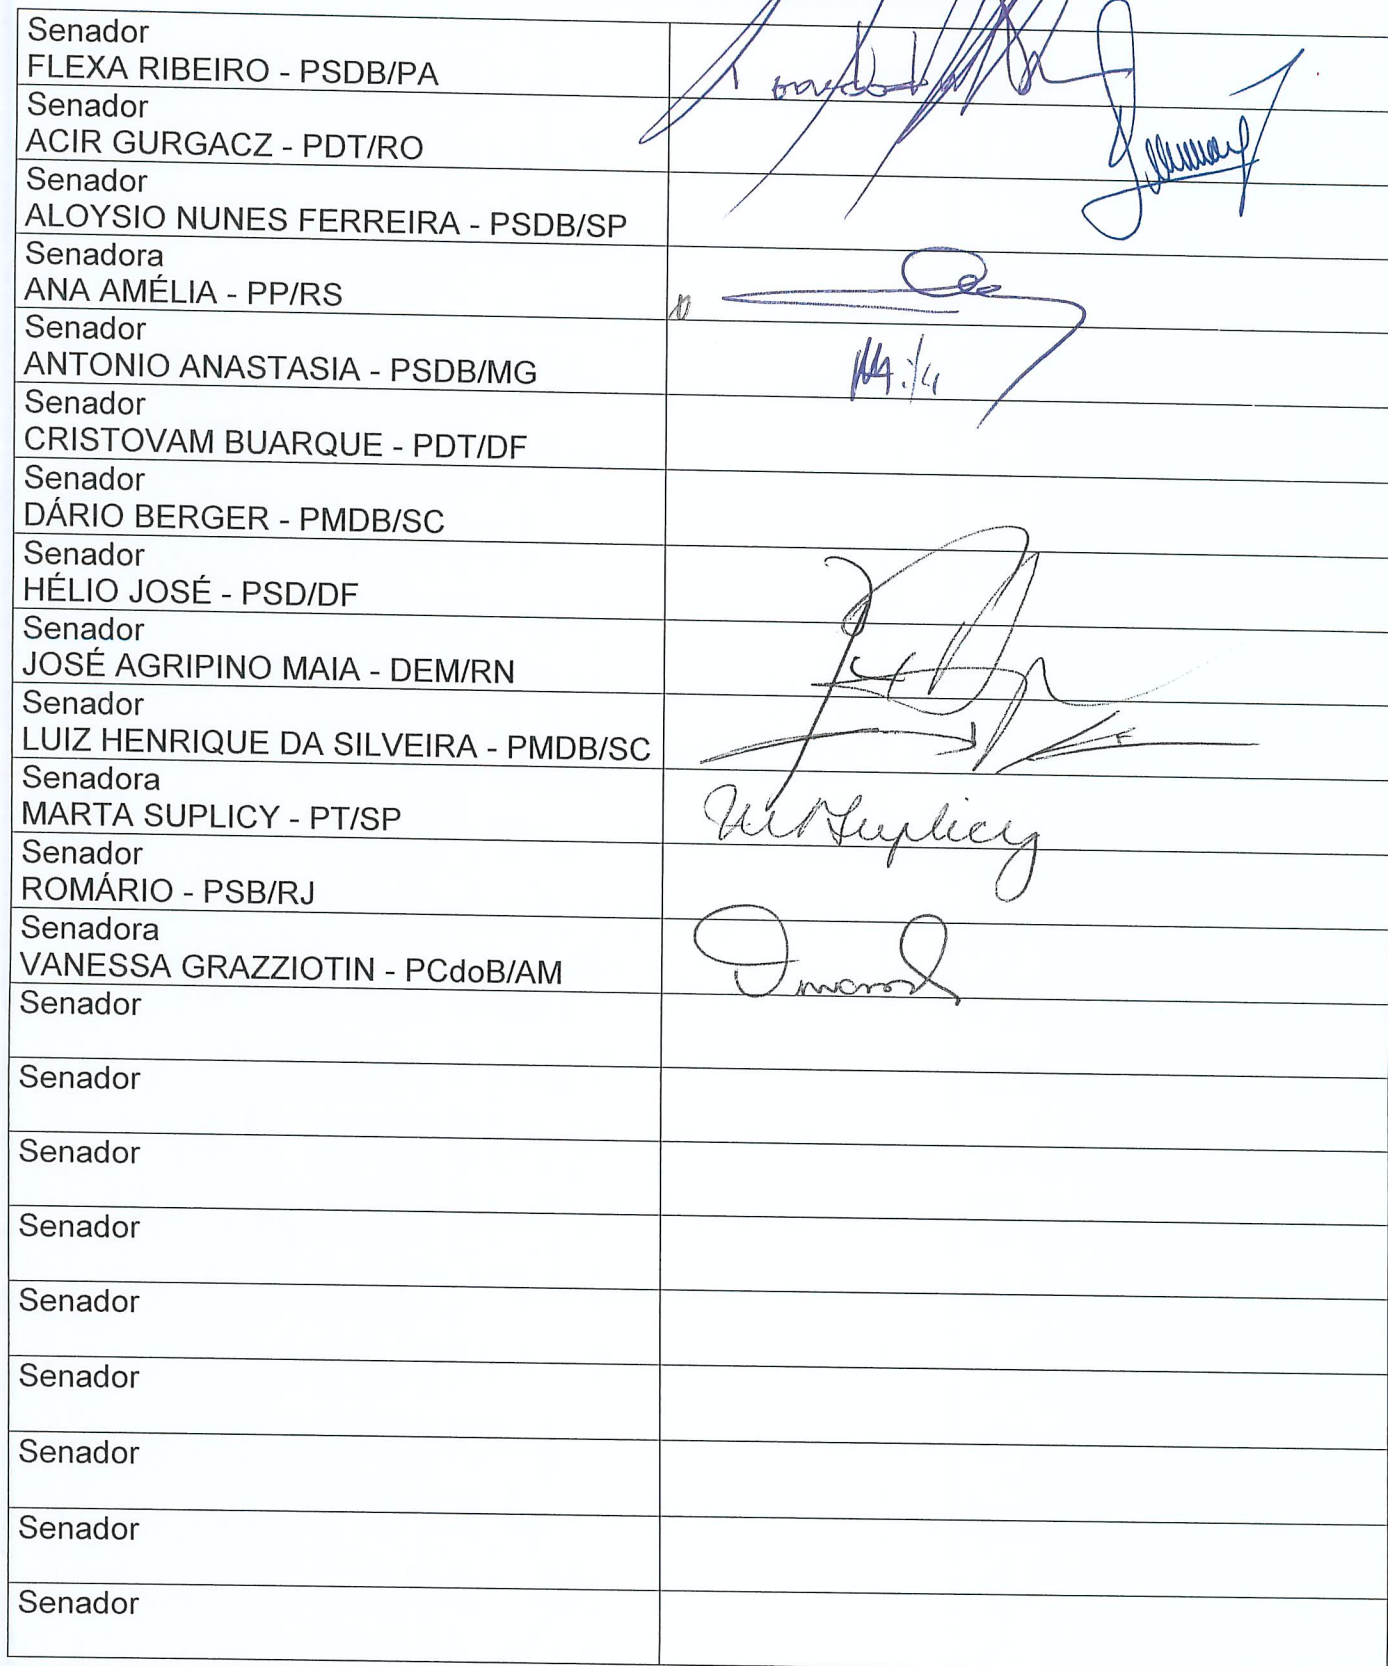 Senador
FLEXA RIBEIRO - PSDB/PA
Senador
ACIR GURGACZ - PDT/RO
Senador
ALOYSIO NUNES FERREIRA - PSDB/SP
Senadora
ANA AMÉLIA - PP/RS
Senador
ANTONIO ANASTASIA - PSDB/MG
Senador
CRISTOVAM BUARQUE - PDT/DF
Senador
DÁRIO BERGER - PMDB/SC
Senador
HÉLIO JOSÉ - PSD/DF
Senador
JOSÉ AGRIPINO MAIA - DEM/RN
Senador
LUIZ HENRIQUE DA SILVEIRA - PMDB/SC
Senadora
MARTA SUPLICY - PT/SP
Suplicy
Senador
ROMÁRIO - PSB/RJ
Senadora
VANESSA GRAZZIOTIN - PCdoB/AM
Senador
Senador
Senador
Senador
Senador
Senador
Senador
Senador
Senador